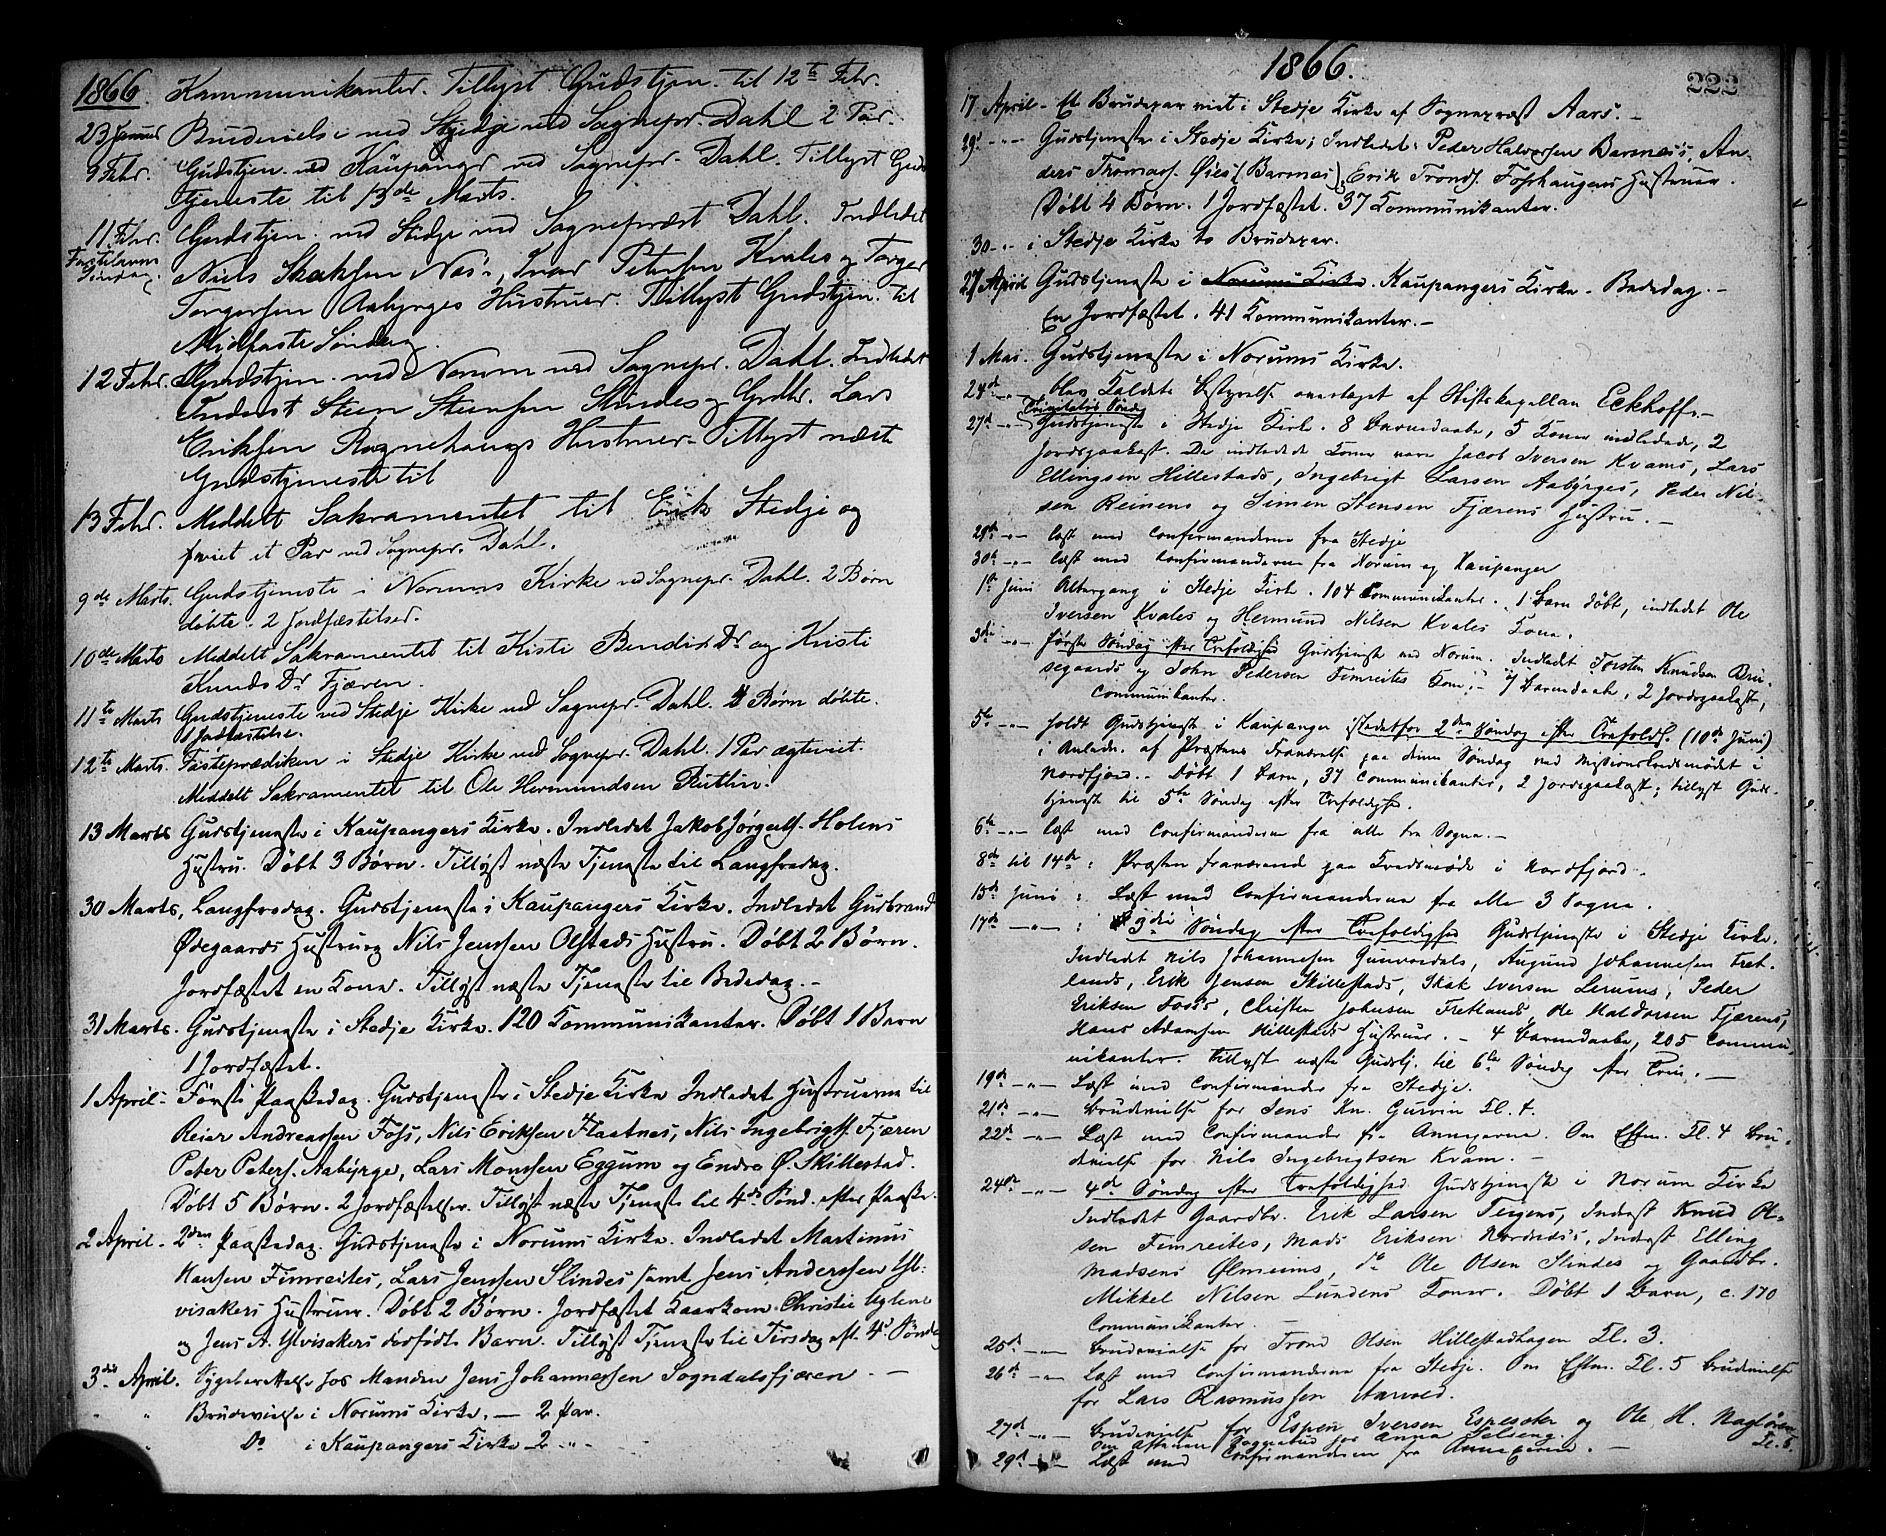 1866. Kommunikanter. Tillyst Gudstjen. til 12te Febr.
23 Januar Brudevielse ved Stedje ved Sognepr. Dahl 2 Par
9 Febr. Gudstjen. ved Kaupanger ved Sognepr. Dahl. Tillyst Guds
tjeneste til 13de Marts.
11 Febr. Gudstjen. ved Stedje ved Sognepræst Dahl. Indledet
Fastelavns Søndag
Niels Næs, Ivar Petersen Kvales og Torger
Torgersen Aabyrges Hustruer. Tillyst Gudstjen. til
Midfaste Søndag.
12 Febr. Gudstjen. ved Norum ved Sognepr. Dahl. Indledet
Inderst Steen Steensen Slindes og Grdbr. Lars
Eriksen Hustruer. Tillyst næste
Gudstjeneste til
13 Febr. Meddelt Sakramentet til Erik Stedje og
et Par ved Sognepr. Dahl.
9de Marts. Gudstjeneste i Norums Kirke ved Sognepr. Dahl. 2 Børn
døbte. 2 Jordfæstelser.
10de Marts Meddelt Sakramentet til Kisti Bendix Dr og Kristi
Knuds Dr Fjæren.
11te Marts Gudstjeneste ved Stedje Kirke ved Sognepr. Dahl. 4 Børn døbte.
1 Jordfæstelse.
12te Marts. Fasteprædiken i Stedje Kirke ved Sognepr. Dahl. 1 Par ægteviet.
Meddelt Sakramentet til Ole Hermundsen Rutlin.
13 Marts Gudstjeneste i Kaupangers Kirke. Indledet Jakob Jørgens. Holens
Hustru. Døbt 3 Børn. Tillyst næste Tjeneste til Langfredag.
30 Marts, Langfredag. Gudstjeneste i Kaupangers Kirke. Indledet Gudbrand
Ødegaards Hustru og Nils Jenssen Olstads Hustru. Døbt 2 Børn.
Jordfæstet en Kone. Tillyst næste Tjeneste til Bededag. –
31 Marts. Gudstjeneste i Stedje Kirke. 120 Kommunikanter. Døbt 1 Barn
1 Jordfæstet.
1 April - Første Paaskedag. Gudstjeneste i Stedje Kirke Indledet Hustruerne til
Reier Andreassen Foss, Nils Eriksen Flaatnes, Nils Ingebrigts. Fjæren
Peter Peters. Aabyrge, Lars Monssen Eggum og Endre Ø. Skillestad.
Døbt 5 Børn. 2 Jordfæstelser. Tillyst næste Tjeneste til 4de Sønd. efter Paaske.
2 April - 2den Paaskedag. Gudstjeneste i Norums Kirke. Indledet Martinus
Hansen Fimreites, Lars Jenssen Slindes samt Jens Anderssen Yl-
visakers Hustruer. Døbt 2 Børn. Jordfæstet Christie
og Jens A. Ylvisakers dødfødte Barn. Tillyst Tjeneste til Tirsdag eft. 4de Søndag
3die April. Sygeberettelse hos Manden Jens Johannessen Sogndalsfjæren. –
" " Brudevielse i Norums Kirke. — 2 Par.
" Do i Kaupangers Kirke 2 "
1866.
222
17 April - Et Brudepar viet i Stedje Kirke af Sognepræst Aars. –
29. " Gudstjeneste i Stedje Kirke; Indledet: Peder Halvorsen Barsnæs, An-
ders Thomas. Øies (Barsnæs), Erik Tronds. Foshaugens Hustruer.
Døbt 4 Børn. 1 Jordfæstet. 37 Kommunikanter.
30 - " i Stedje Kirke to Brudepar.
27 April Gudstjeneste i Norums Kirke. Kaupangers Kirke - Bededag. –
En Jordfæstet. 41 Kommunikanter. –
1 Mai. Gudstjeneste i Norums Kirke.
24de " blev Kaldets Bestyrelse overtaget af Stiftskapellan Eckhoff. –
Trinitatis Søndag
27de " Gudstjeneste i Stedje Kirke. 8 Barnedaabe, 5 Koner indledede, 2
Jordspaakast. De indledede Koner vare Jacob Iversen Kvams, Lars
Ellingsen Hillestads, Ingebrigt Larsen Aabyrges, Peder Nil-
sen Reinens og Simen Stensen Fjærens Hustru. –
29de " læst med Confirmanderne fra Stedje
30te " læst med Confirmanderne fra Norum og Kaupanger
1te Juni Altergang i Stedje Kirke. 104 Communikanter. 1 Barn døbt, indledet Ole
Iversen Kvales og Hermund Nilsen Kvales Kone.
3die " første Søndag efter Trefoldighed Gudstjeneste ved Norum. Indledet Torsten Knudsen Bru-
segaards og John Pedersen Fimreites Kone; – 7 Barnedaabe, 2 Jordspaakast,
Communikanter.
5te " holdt Gudstjeneste i Kaupanger istedetfor 2den Søndag efter Trefoldh. (10de Juni)
i Anledn. af Præstens Fraværelse paa denne Søndag ved Missionskredsmødet i
Nordfjord. – Døbt 1 Barn, 37 Communikanter, 2 Jordspaakast; tillyst Guds-
tjeneste til 5te Søndag efter Trefoldighed.
6te " læst med Confirmanderne fra alle tre Sogne. –
8de til 14de: Præsten fraværende paa Kredsmøde i Nordfjord. –
15de Juni: Læst med Confirmanderne fra alle 3 Sogne.
17de — " —: 3die Søndag efter Trefoldighed Gudstjeneste i Stedje Kirke.
Indledet Nils Johannesen Gunvordals, Augund Johannesen Fret-
lands, Erik Jensen Skillestads, Isak Iversen Lerums, Peder
Eriksen Foss's, Christen Johnsen Fretlands, Ole Haldorsen Fjærens,
Hans Adamsen Hillestads Hustruer. – 4 Barnedaabe, 205 Commu-
nikanter. Tillyst næste Gudstj. til 6te Søndag efter Trin. –
19de — " — Læst med Confirmander fra Stedje.
21de — " — Brudevielse for Jens Kn. Gurvin Kl. 4.
22de — " — Læst med Confirmander fra Annexerne. Om Eftm. Kl. 4 Bru-
devielse for Nils Ingebrigtsen Kvam. –
24de — " — 4de Søndag efter Trefoldighed Gudstjeneste i Norum Kirke
Indledet Gaardbr. Erik Larsen Teigens, Inderst Knud Ol-
sen Fimreites, Mads Eriksen Nordnæs's, Inderst Elling
Madsens Ølmeims, do Ole Olsen Slindes og Gaardbr.
Mikkel Nilsen Lundens Koner. Døbt 1 Barn, c. 170
Communikanter. –
25de — " — Brudevielse for Trond Olsen Hillestadhagen Kl. 3.
26de — " — Læst med Confirmanderne fra Stedje. Om Eftm. Kl. 5 Brudevielse
for Lars Rasmussen Aarvold.
27de — " — Brudevielse for Espen Iversen Espeseter og Ole H. Kl. 5.
Om Aftenen Sognebud for Anna
29de — " — Læst med Confirmanderne fra Annexerne. –